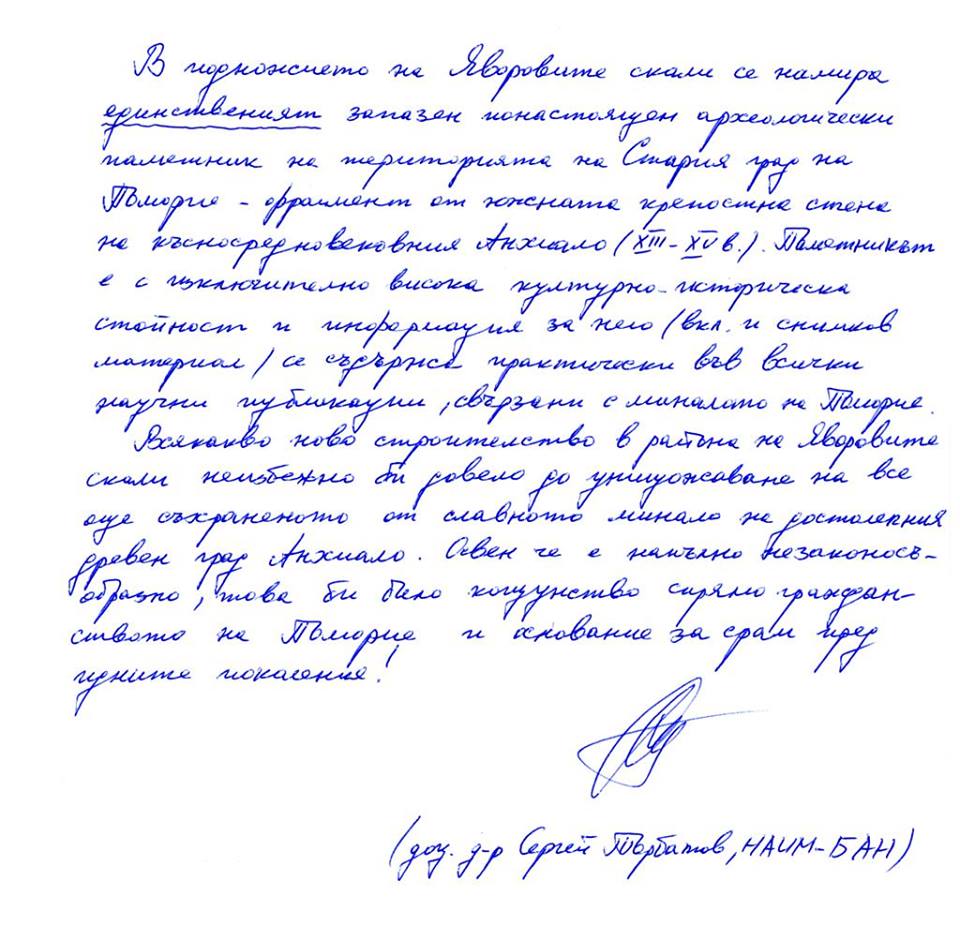 В подножието на Яворовите скали се намира
единственият запазен понастоящем археологически
паметник на територията на Стария град на
Поморие – фрагмент от южната крепостна стена
на късносредновековния Анхиало (XIII–XV в.). Паметникът
е с изключително висока културно-историческа
стойност и информация за него (вкл. и снимков
материал) се съдържа практически във всички
научни публикации, свързани с миналото на Поморие.
Всякакво ново строителство в района на Яворовите
скали неизбежно би довело до унищожаване на все
още съхраненото от славното минало на достолепния
древен град Анхиало. Освен че е напълно незаконосъ-
образно, това би било кощунство спрямо граждан-
ството на Поморие и основание за срам пред
идните поколения!
(доц. д-р Сергей Торбатов, НАИМ–БАН)